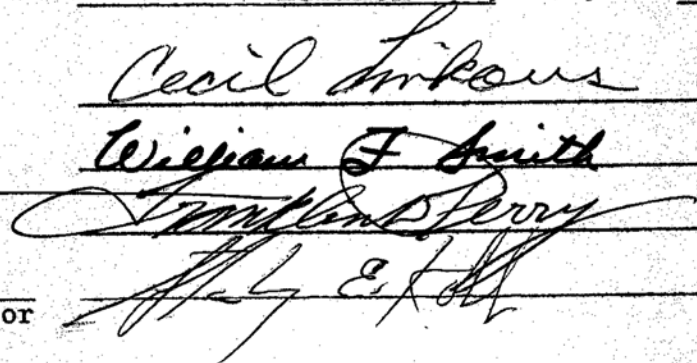 Cecil Linkous
William F Smith
Franklin D Perry
E.
or